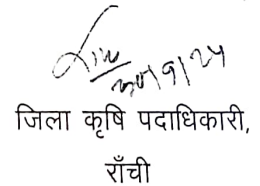 30/9/24
जिला कृषि पदाधिकारी,
राँची